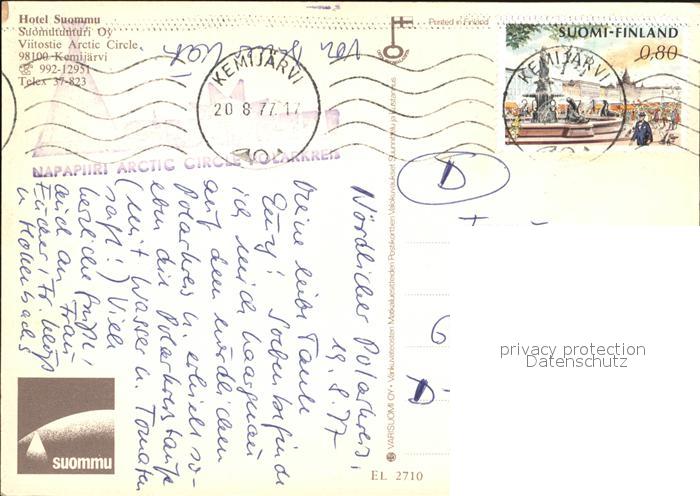 Hotel Suommu
Suomutunturi Oy
Viitostie Arctic Circle
98100 Kemijärvi
☎ 992-12951
Telex 37-823
Printed in Finland
SUOMI-FINLAND
0,80
KEMIJÄRVI
20 8 77.17
KEMIJÄRVI
NAPAPIIRI ARCTIC CIRCLE POLARKREIS
Nördlicher Polarkreis,
19.8.77
Meine liebe Tante
! Soeben befinde
ich mich haargenau
auf dem nördlichen
Polarkreis u. erhielt so-
eben die Polarkreistaufe
(mit Wasser u. Tomaten
saft!) Viele
herzliche Grüße,
auch an Frau
u.
D
G
D-
VARISUOMI OY
suommu
EL 2710
privacy protection
Datenschutz